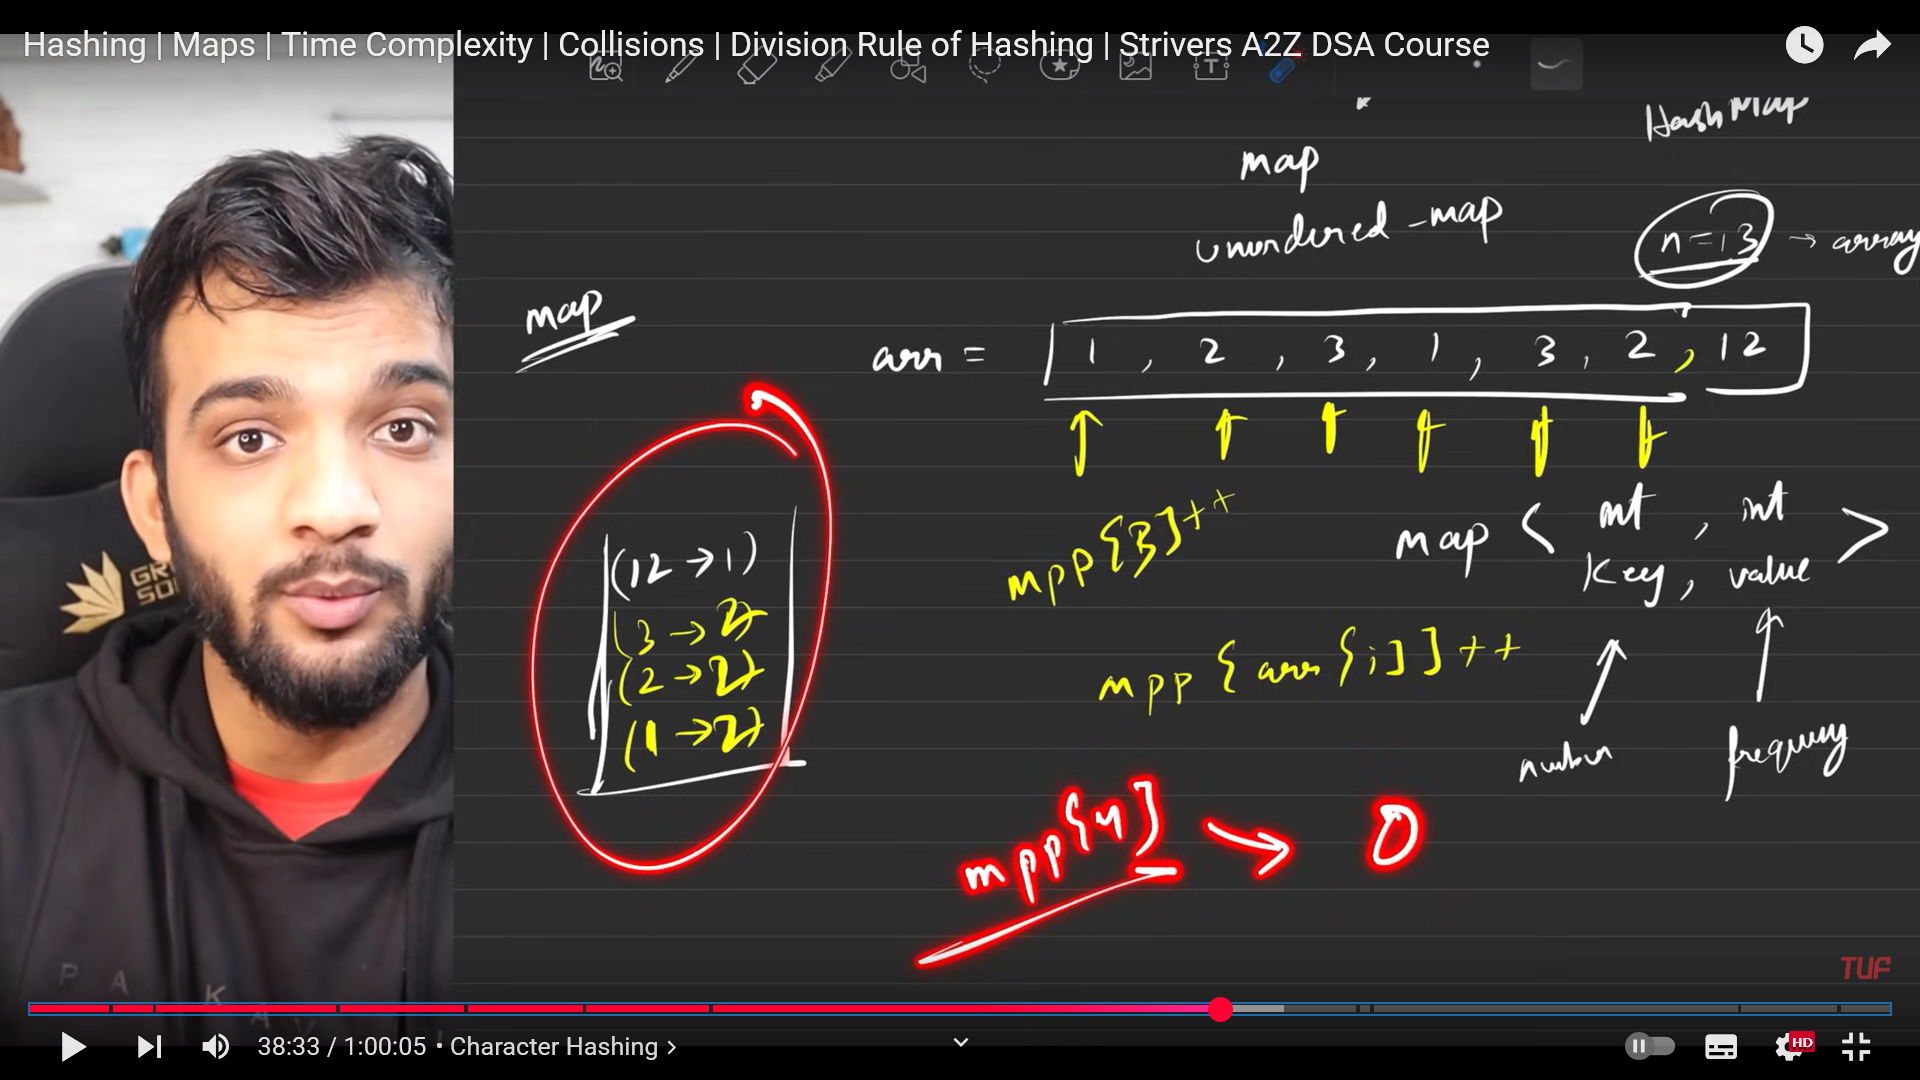 Hashing | Maps | Time Complexity | Collisions | Division Rule of Hashing | Strivers A2Z DSA Course
HashMap
map
unordered_map
n=13 → array
map
arr = | 1 , 2 , 3 , 1 , 3 , 2 , 12
mpp[3]++
map < int , int >
key , value
(12 → 1)
(3 → 2)
(2 → 2)
(1 → 2)
mpp[arr[i]]++
number
frequency
mpp[4] → 0
GR
SO
PAKAV
TUF
38:33 / 1:00:05 • Character Hashing >
HD